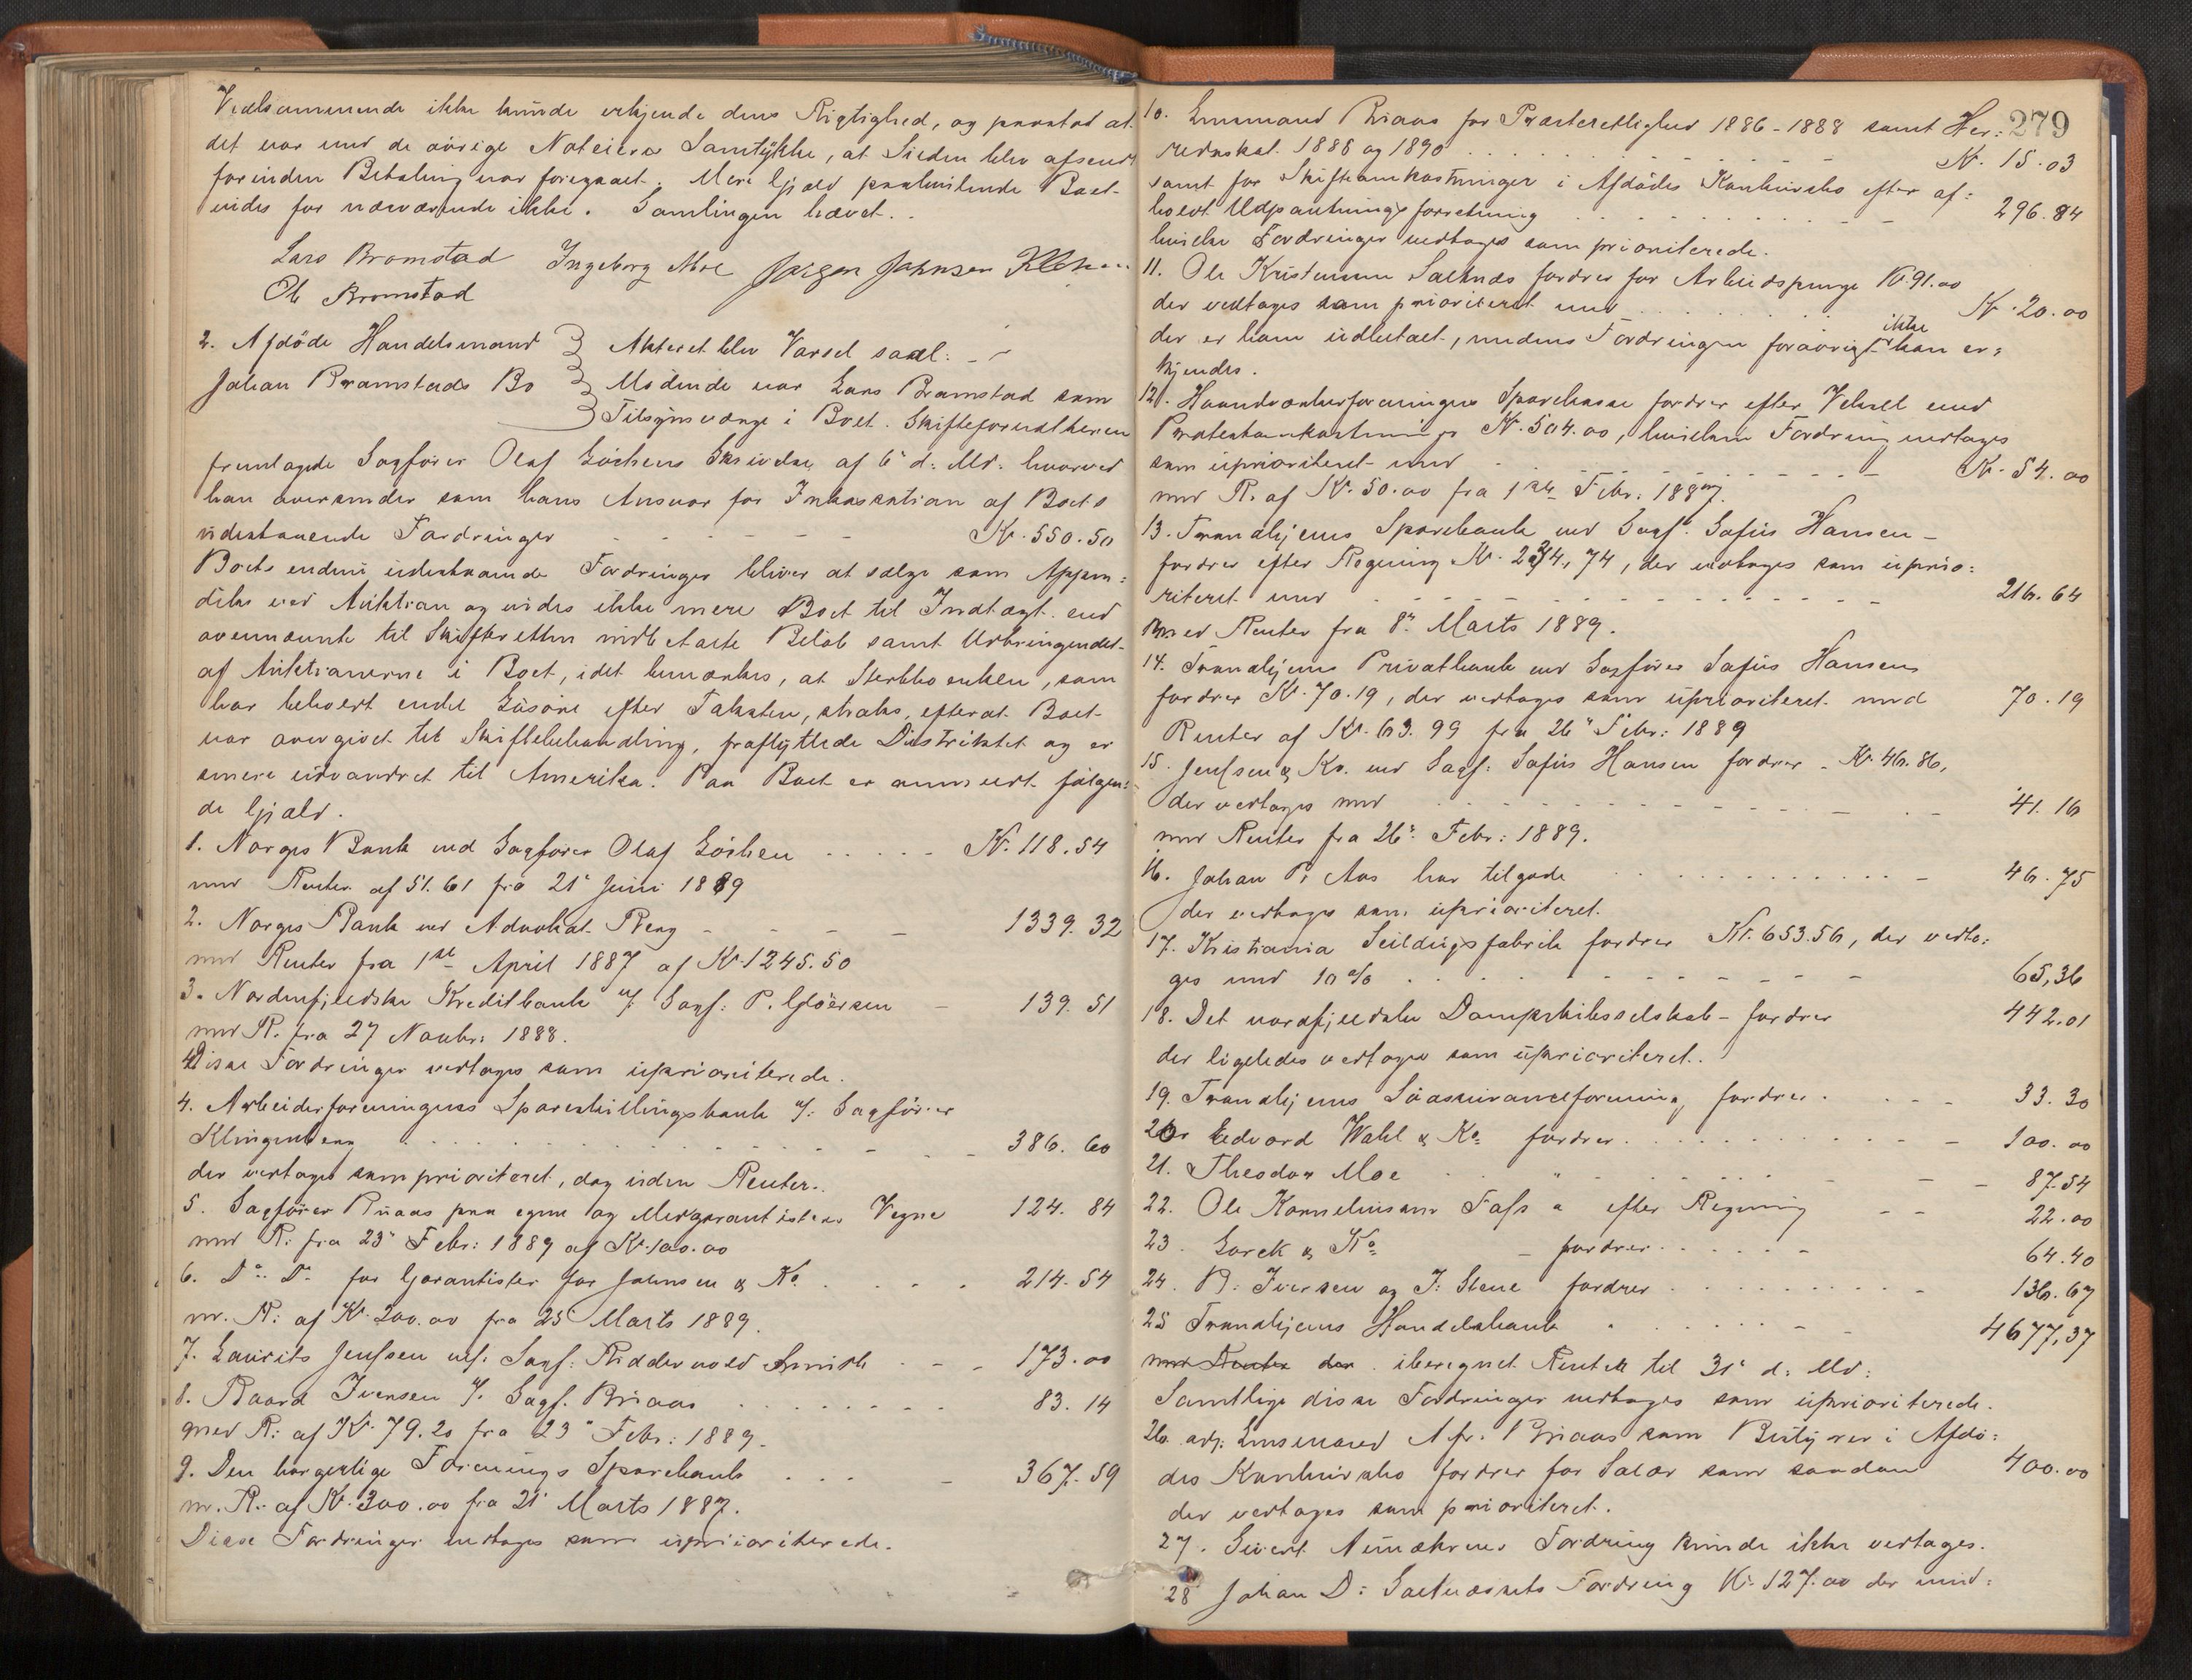 Vedkommende ikke kunde erkjende dens Rigtighed, og paastod at
det var med de øvrige Noteieres Samtykke, at Silden blev afsendt
forinden Betaling var foregaaet. Mere Gjæld paahvilende Boet
vides for nærværende ikke. Samlingen hævet.
Lars Bromstad Ingeborg Moe Jørgen Johnsen
Ole Bromstad
2. Afdøde Handelsmand Akteret blev Varsel saal:
Johan Bramstads Bo Mødende var Lars Bramstad som
Tilsynsværge i Boet. Skifteforvalteren
fremlagde Sagfører Olaf Löchens Skrivelse af 6' d: Md: hvorved
han oversender som hans Ansvar for Inkassation af Boets
udestaaende Fordringer - - - - - Kr. 550.50
Boets endnu udestaaende Fordringer bliver at sælge som Appen:
diks ved Auktion og vides ikke mere Boet til Indtægt end
ovennævnte til Skifteretten indbetalte Beløb samt Udbringendet
af Auktionerne i Boet, idet bemærkes, at Sterbboenken, som
har behoert endel Løsøre efter Taksten, straks, efterat Boet
var overgivet til Skiftebehandling, fraflyttede Distriktet og er
senere udvandret til Amerika. Paa Boet er anmeldt følgen:
de Gjæld.
1. Norges Bank ved Sagfører Olaf Löchen - - - - Kr. 118.54
med Renter af 51.61 fra 21' Juni 1889
2. Norges Bank ved Advokat Berg - - - - 1339.32
med Renter fra 1ste April 1887 af Kr. 1245.50
3. Nordenfjeldske Kreditbank v/ Sagf: P. Gløersen - 139.51
med R. fra 27 Novbr: 1888.
Disse Fordringer vedtages som uprioriterede.
4. Arbeiderforeningens Spareskillingsbank v/: Sagfører
Klingenberg - - - - - 386.60
der vedtages som prioriteret, dog uden Renter.
5. Sagfører Bruaas paa egne og Medgarantisters Vegne 124.84
med R: fra 23' Febr: 1889 af Kr. 100.00
6. Do. Do. for Garantister for Johnsen & Ko. - - - 214.54
m. R: af Kr. 200.00 fra 25 Marts 1889.
7. Laurits Jenssen ved: Sagf: Riddervold Smith - - - 173.00
8. Baard Iversen v/. Sagf. Bruaas - - - - 83.14
med R: af Kr. 79.20 fra 23" Febr: 1889.
9. Den borgerlige Forenings Sparebank - - - 367.59
m. R: af Kr. 300.00 fra 21' Marts 1887.
Disse Fordringer vedtages som uprioriterede.
279
10. Lensmand Bruaas for Præsterettighed 1886-1888 samt Her:
redsskat 1888 og 1890 - - - - - Kr. 15.03
samt for Skifteomkostninger i Afdødes Konkursbo efter af:
holdt Udpantningsforretning - - - - - 296.84
hvilke Fordringer vedtages som prioriterede.
11. Ole Kristensen Saltnæs fordrer for Arbeidspenge Kr. 91.00
der vedtages som prioriteret med - - - - Kr. 20.00
der er ham udbetalt, medens Fordringen forøvrigt ikke kan er:
kjendes.
12. Haandværkerforeningens Sparekasse fordrer efter Veksel med
Protestomkostninger Kr. 504.00, hvilken Fordring vedtages
som uprioriteret med - - - - - Kr. 54.00
med R. af Kr. 50.00 fra 1ste Febr: 1887.
13. Trondhjems Sparebank ved Sagf. Sofus Hansen -
fordrer efter Regning Kr. 224,74, der vedtages som uprio:
riteret med - - - - - 216.64
med Renter fra 8" Marts 1889.
14. Trondhjems Privatbank ved Sagfører Sofus Hansen
fordrer Kr. 70.19, der vedtages som uprioriteret med 70.19
Renter af Kr. 63.99 fra 26" Febr: 1889
15. Jenssen & Ko. ved Sagf: Sofus Hansen fordrer - Kr. 46.86,
der vedtages med - - - - - 41.16
med Renter fra 26" Febr: 1889.
16. Johan P. Aas har tilgode - - - - 46.75
der vedtages som uprioriteret.
17. Kristiania Seildugsfabrik fordrer Kr. 653.56, der vedta:
ges med 10% - - - - - 65,36
18. Det nordfjeldske Dampskibsselskab fordrer 442.01
der ligeledes vedtages som uprioriteret.
19. Trondhjems Søassuranceforening fordrer - - - 33.30
20. Edvard Wahl & Ko: fordrer - - - - 100.00
21. Theodor Moe " - - - - 87.54
22. Ole Kornelinsens Fass " efter Regning - - 22.00
23. Lorck & Ko: - fordrer - - - - 64.40
24. B: Iversen og J: Stene fordrer - - - - 136.67
25 Trondhjems Handelsbank " - - - - 4677,37
med Renter der iberegnet Renter til 31' d: Md:
Samtlige disse Fordringer vedtages som uprioriterede.
26. adj: Lensmand A fr. Bruaas som Bestyrer i Afdø:
des Konkursbo fordrer for Salær som saadan 400.00
der vedtages som prioriteret.
27. Sivert Fordring kunde ikke vedtages.
28 Johan D: Saltnæssets Fordring Kr. 127.00 der med: